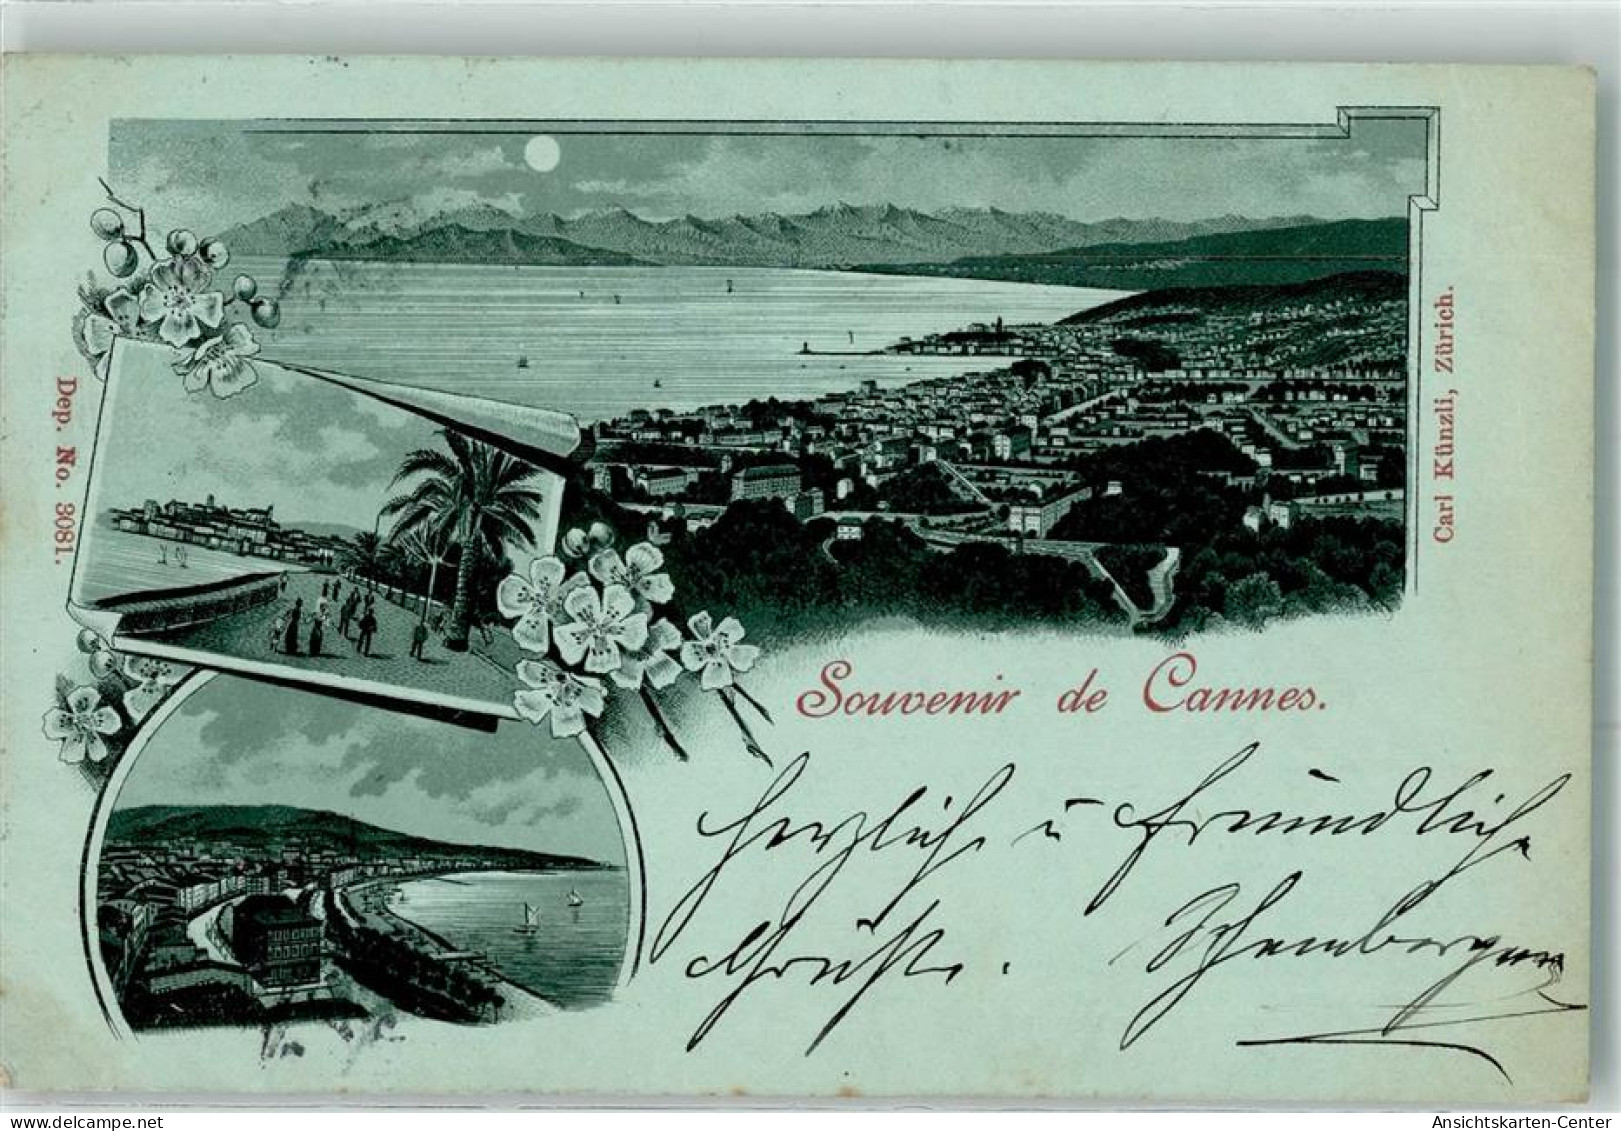 Souvenir de Cannes.
Dep. No. 3081.
Carl Künzli, Zürich.
Herzliche u freundliche
Grüße.
AnsichtsKarten-Center